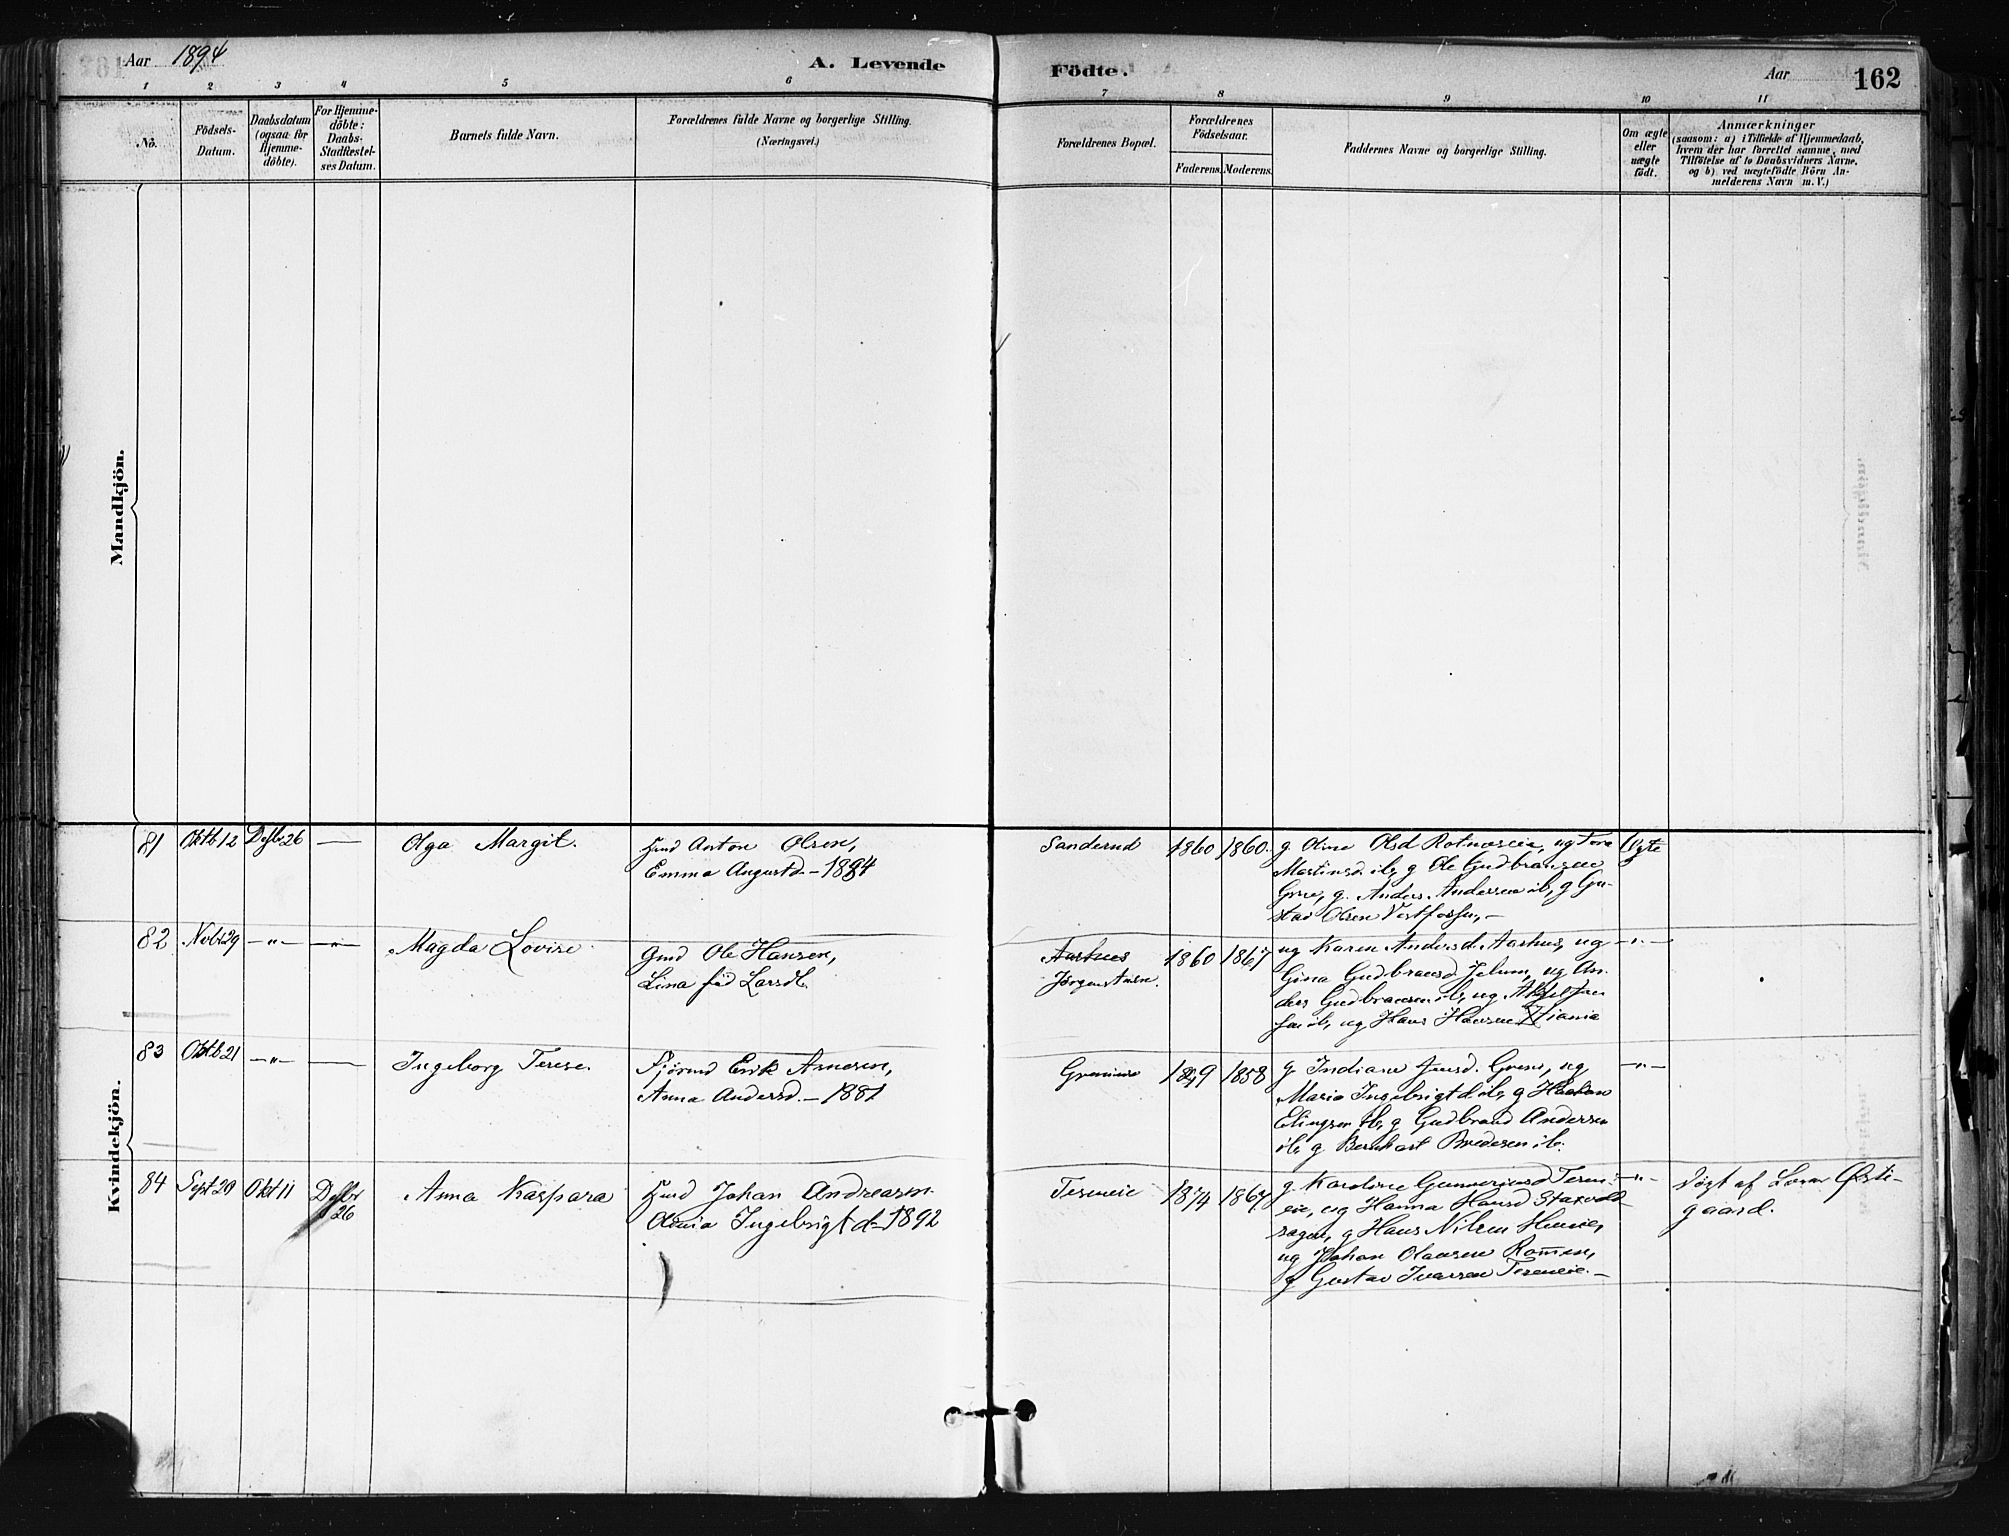 Aar 1894
A. Levende
Födte.
Aar
162
1 2 3 4 5 6
7 8 9 10 11
No.
Födsels-
Datum.
Daabsdatum
(ogsaa for
Hjemme-
döbte).
For Hjemme-
döbte:
Daabs-
Stadfæstel-
ses Datum.
Barnets fulde Navn.
Forældrenes fulde Navne og borgerlige Stilling.
(Næringsvei.)
Forældrenes Bopæl.
Forældrenes
Födselsaar.
Faderens.
Moderens.
Faddernes Navne og borgerlige Stilling.
Om ægte
eller
uægte
födt.
Anmærkninger
(saasom: a) i Tilfælde af Hjemmedaab,
hvem der har forrettet samme, med
Tilföielse af to Daabsvidners Navne,
og b) ved uægtefödte Börn An-
melderens Navn m. V.)
Mandkjön.
Kvindekjön.
81 Oktb 12 Dsbr 26 — Olga Margit.
Anton Olsen,
Emma Augustd. – 1884
Sanderud 1860 1860.
g. Oline Olsd
Martinsd. ib, g Ole Gudbransen
g. Anders Andersen ib, g Gu-
stav Olsen Vestfossen, –
Ægte
82 Nvb 29 –"– –"– Magda Lovise.
Gmd Ole Hansen,
Lina fød Larsd.
Aashus 1860 1867
ug Karen Andersd. Aashus, ug
Gina Gudbransd Jelum, ug An-
ders Gudbransen ib, ug
ug Hans Hansen
–"–
83 Oktb 21 –"– — Ingeborg Terese.
Erik Arnesen,
Anna Andersd. – 1881
1849 1858
g Indiane
Maria Ingebrigtd ib, g
g Gudbrand Andersen
ib, g Bernhart Bredesen ib.
–"–
84 Sept 20 Okt 11 Dsbr
26
Anna Kaspara
Johan Andreasen
Ingebrigtd – 1892
Teseneie 1874 1867
g. Karoline
eie, ug Hanna Hansd
g Hans Nilsen
ug Johan Olausen
g Gustav Iversen Teseneie. –
–"–
Døgt af
gaard.